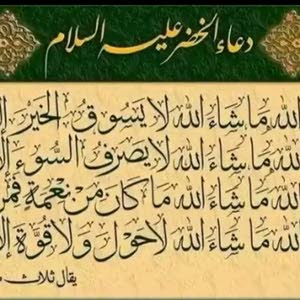 دعاء الخضر عليه السلام
الله ما شاء الله لا يسوق الخير
الله ما شاء الله لا يصرف السوء
الله ما شاء الله ما كان من نعمة فمن
الله ما شاء الله لا حول ولا قوة
يقال ثلاث